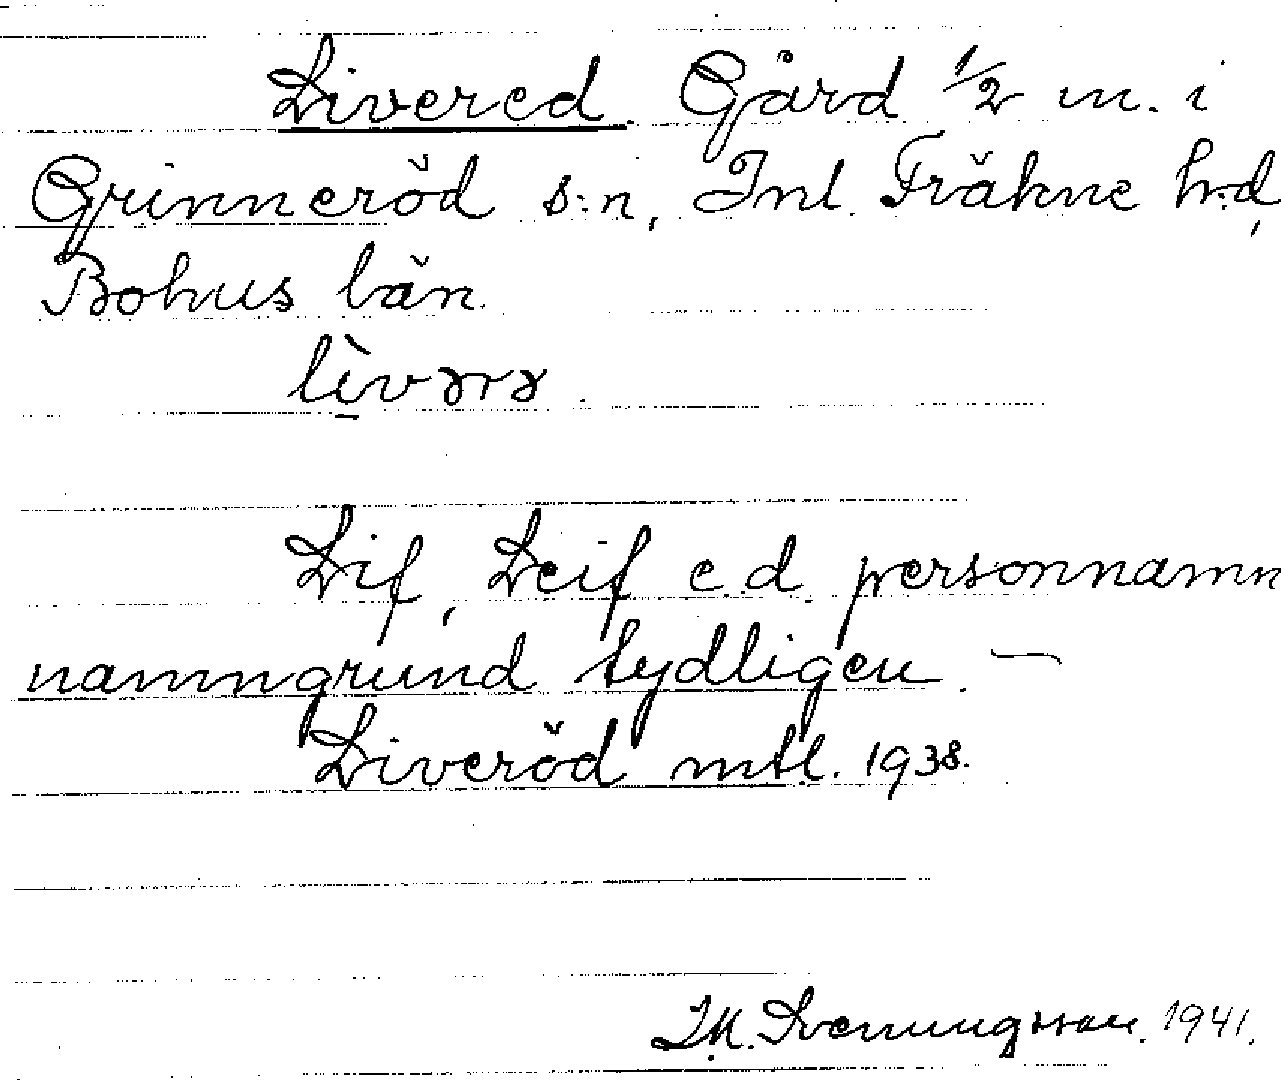 Livered. Gård 1/2 m. i
Grinneröd s:n, Inl. Fräkne h:d,
Bohus län.
lìvərə.
Lif, Leif e.d. personnamn
namngrund tydligen. —
Liveröd mtl. 1938.
J.M. Svenungsson. 1941.